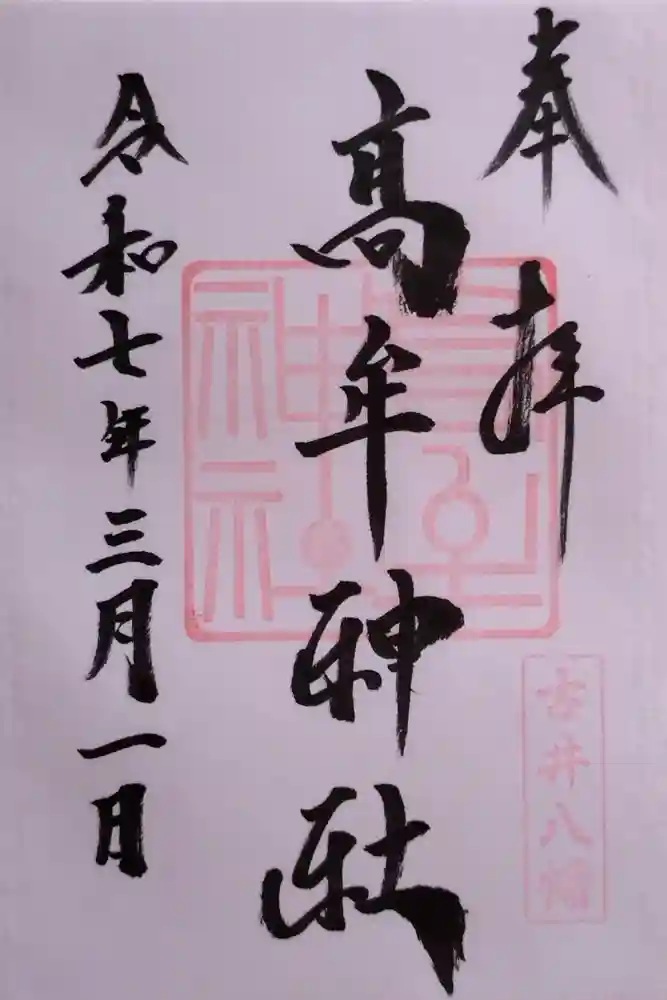 奉拝
古井八幡
高牟神社
令和七年三月一日